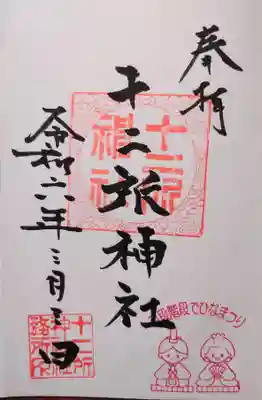 奉拝
十二所神社
令和六年三月三日
十二所神社
階段でひなまつり
十二所神社社務所